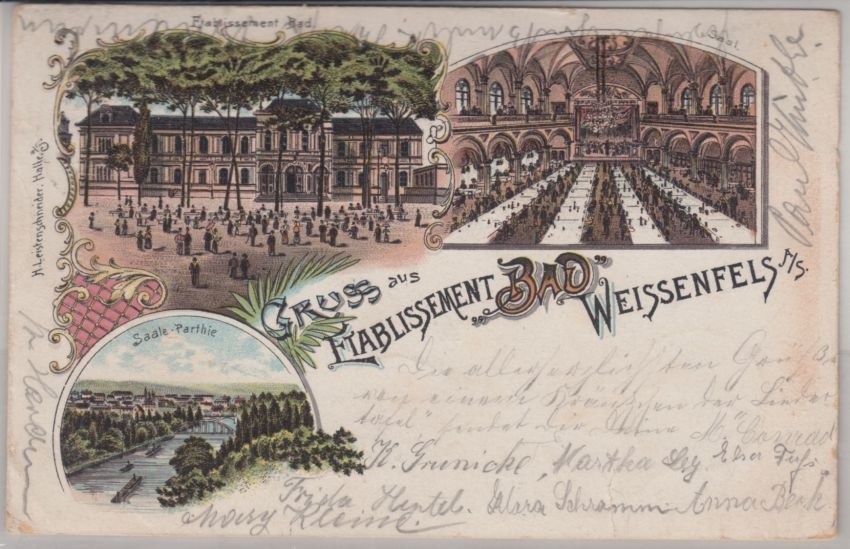 Etablissement Bad.
Saal.
H. Leistenschneider, Halle a/S.
Gruss aus
Etablissement „Bad”
Weissenfels a/S.
Saale-Parthie
Die allerherzlichsten Grüße
von einem Kränzchen der Lieder
tafel" sendet Dir Deine M. Conrad
K. Grunicke, Martha Ley Elser Fuß
Frida Hentel. Klara Schramm Anna Benk
Mary Kleine.